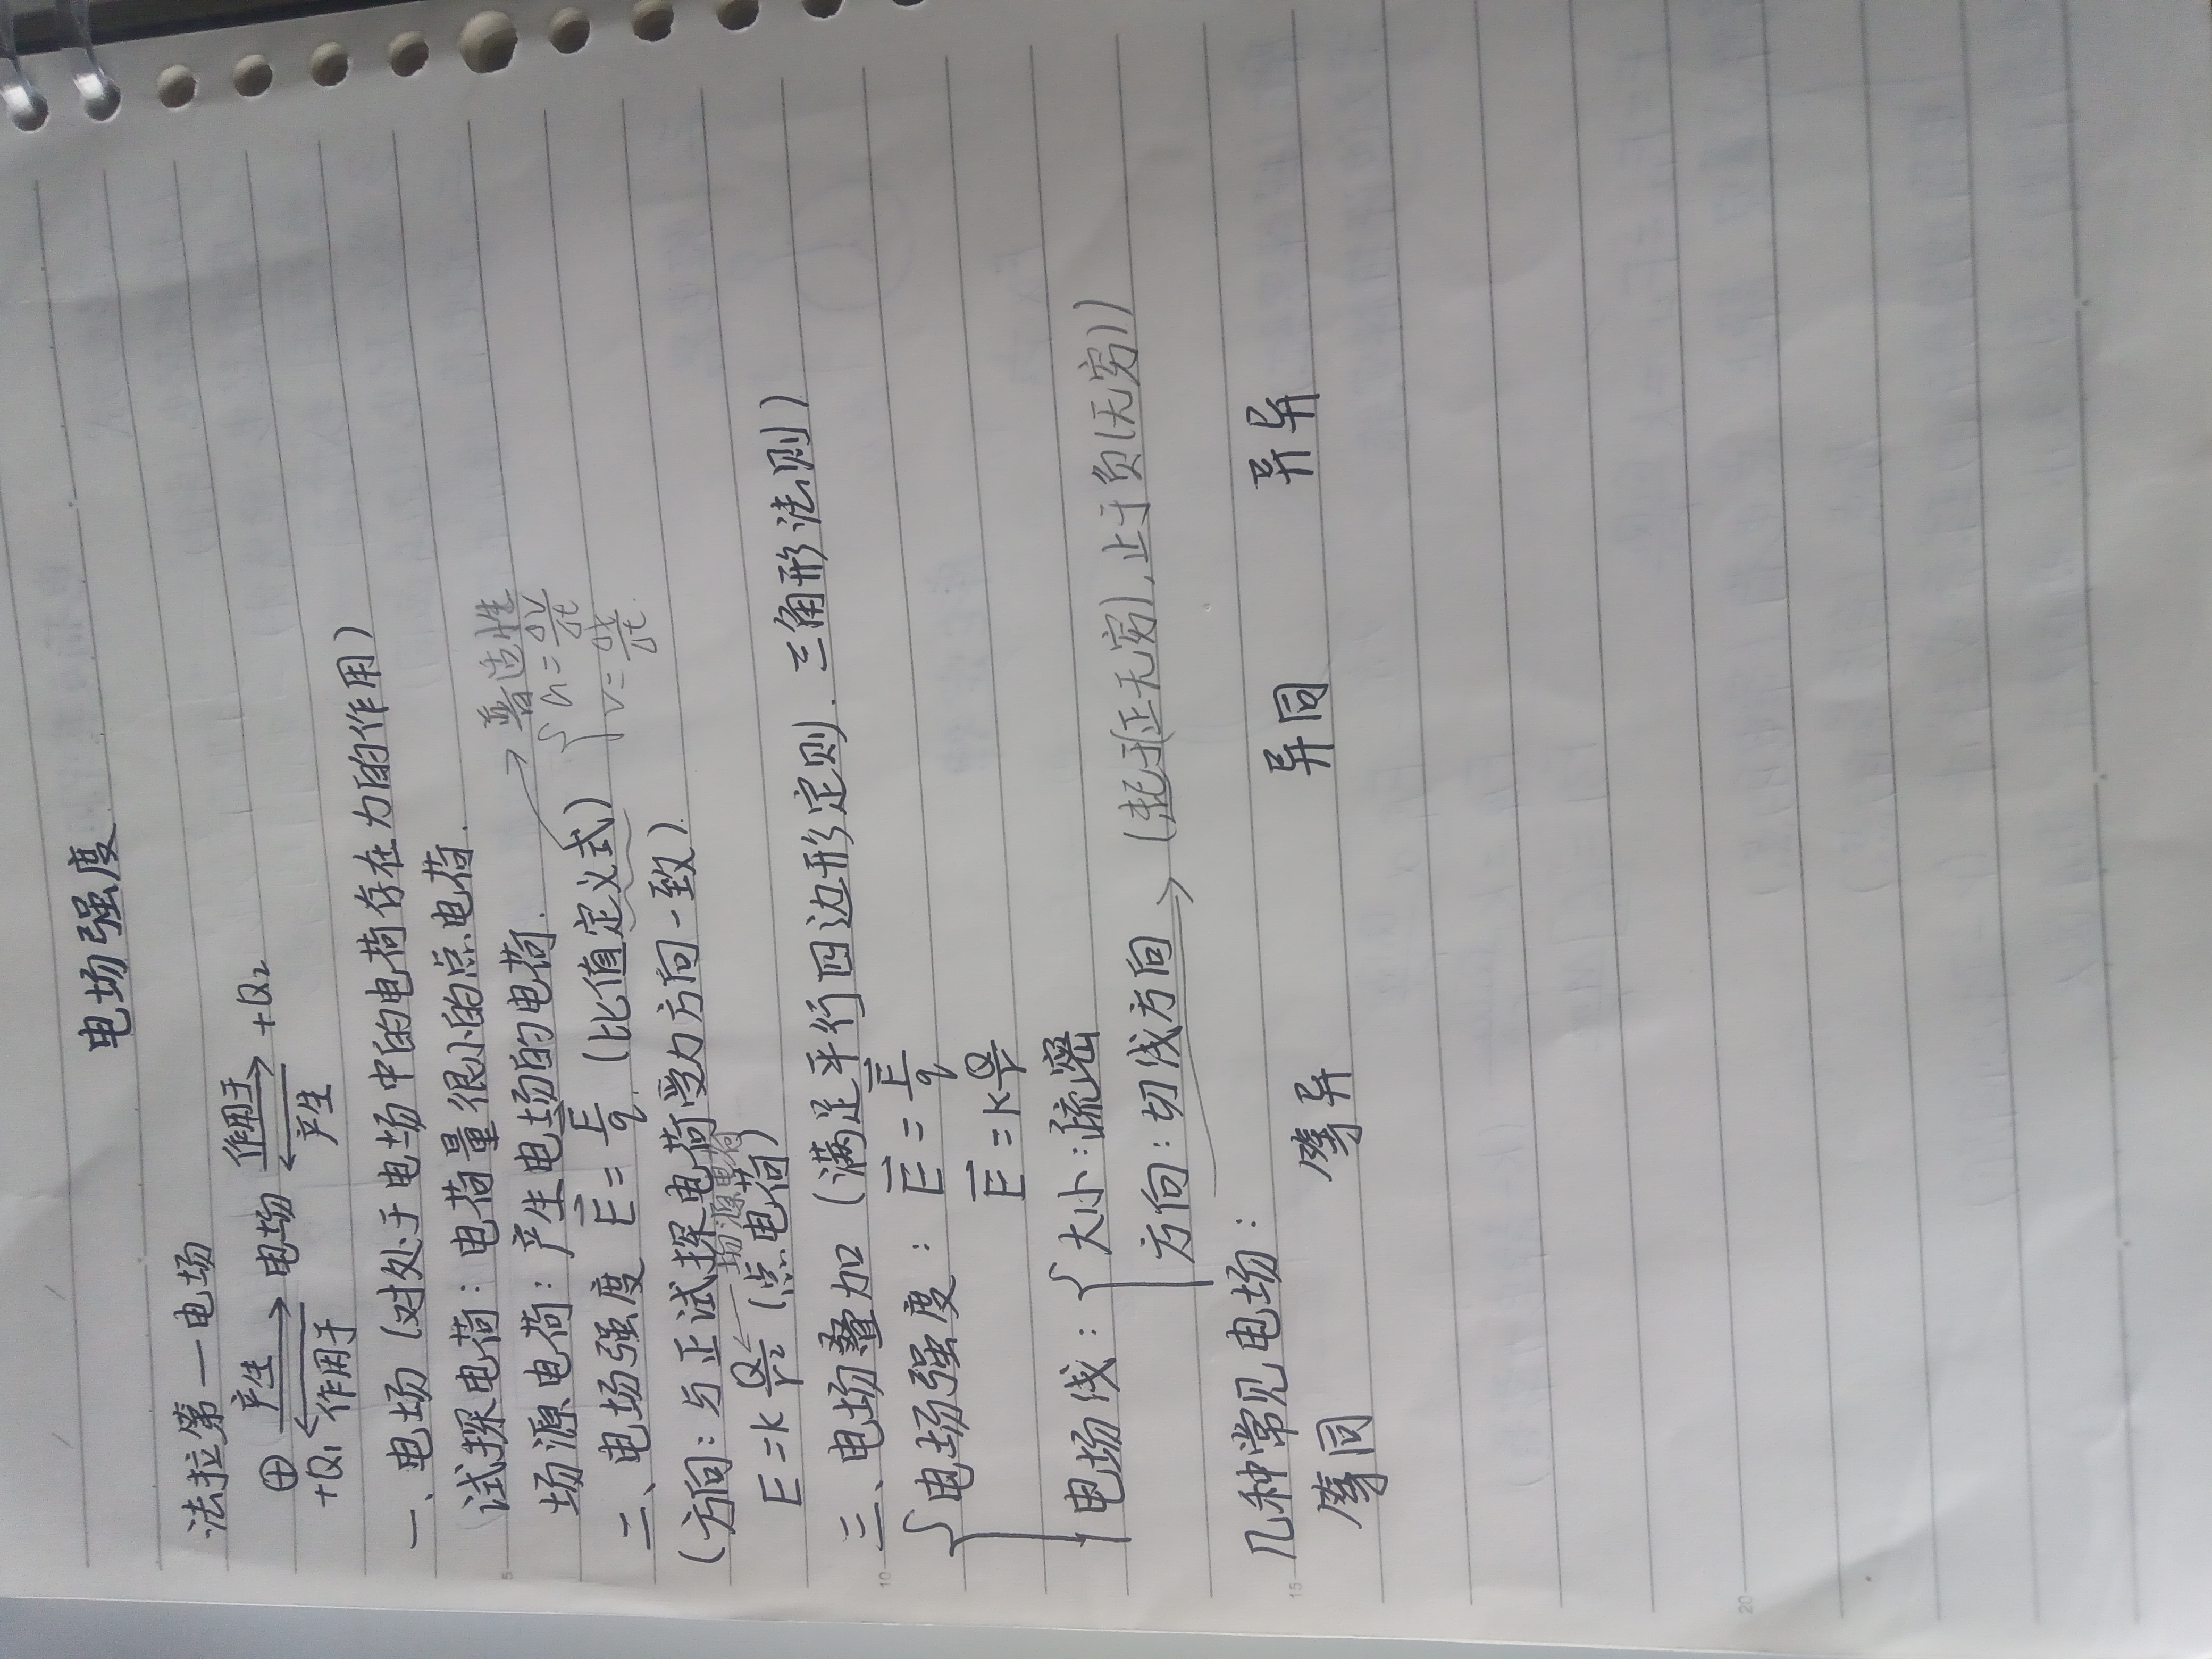 电场强度
法拉第一电场
⊕ 产生→ 电场 作用于→ +Q₂
+Q₁ ←作用于 ←产生
一、电场(对处于电场中的电荷存在力的作用)
试探电荷:电荷量很小的点电荷.
场源电荷:产生电场的电荷. → 普适性
二、电场强度 E⃗=F⃗/q (比值定义式) { a=ΔV/Δt
v=Δx/Δt.
(方向:与正试探电荷受力方向一致).
场源电荷
E=kQ/r² (点电荷)
三、电场叠加 (满足平行四边形定则.三角形法则)
{ 电场强度: E⃗=F⃗/q
E⃗=kQ/r
电场线:{ 大小:疏密
方向:切线方向 → (起于正(无穷),止于负(无穷))
几种常见电场:
等同 等异 异同 异异
5
10
15
20